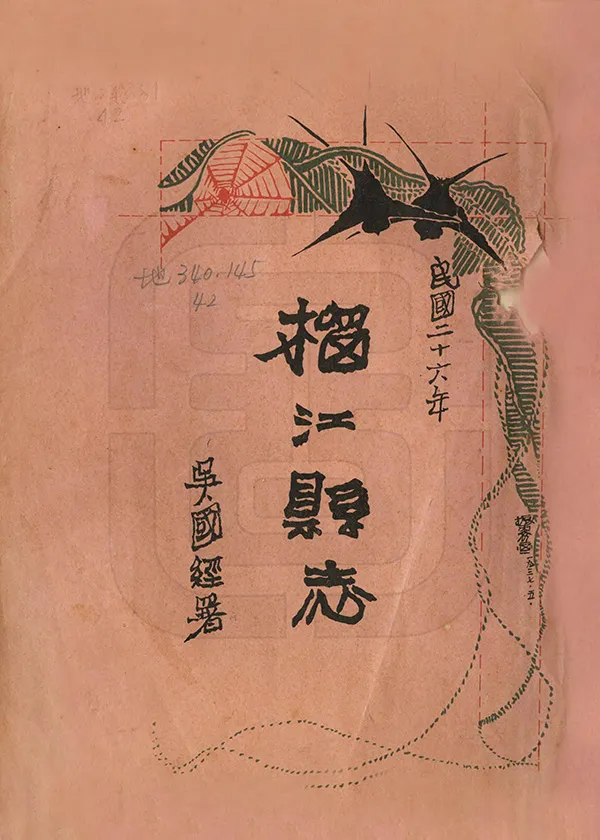 民國二十六年
榴江縣志
吳國經署
地 340.145
42
一九三七・五・